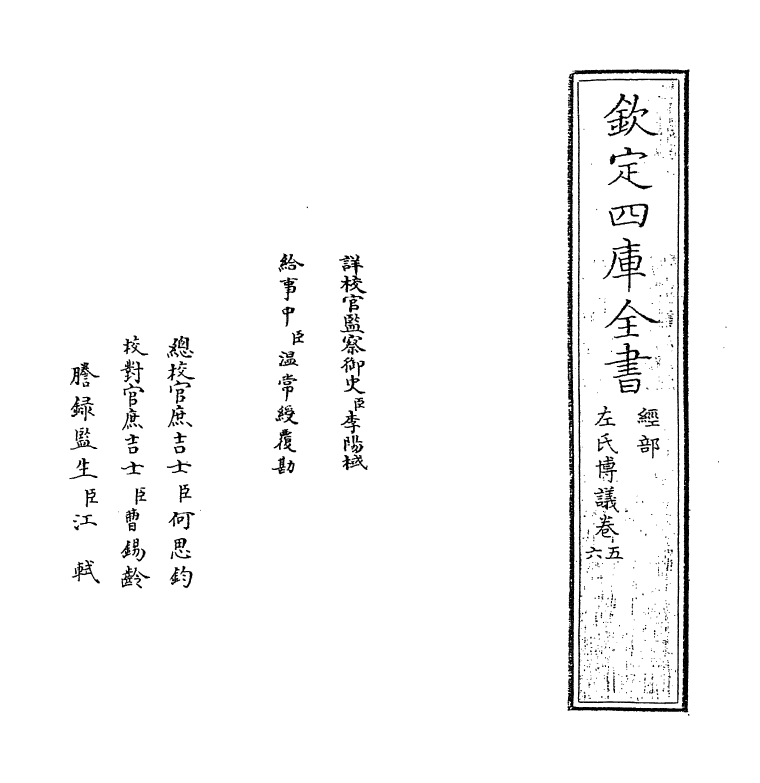 欽定四庫全書
經部
左氏博議卷五六
詳校官監察御史臣李陽棫
給事中臣温常綬覆勘
總校官庶吉士臣何思鈞
校對官庶吉士臣曹錫齡
謄録監生臣江軾